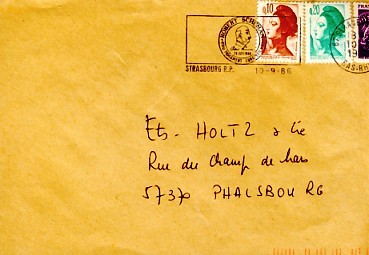 ROBERT SCHUMAN
STRASBOURG R.P.
10-9-86
0,10
0,20
BAS-RH
Ets - HOLTZ & Cie
Rue du Champ de Mars
57370 PHALSBOURG